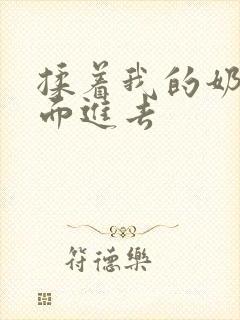 揉着我的奶
而進去
符德樂